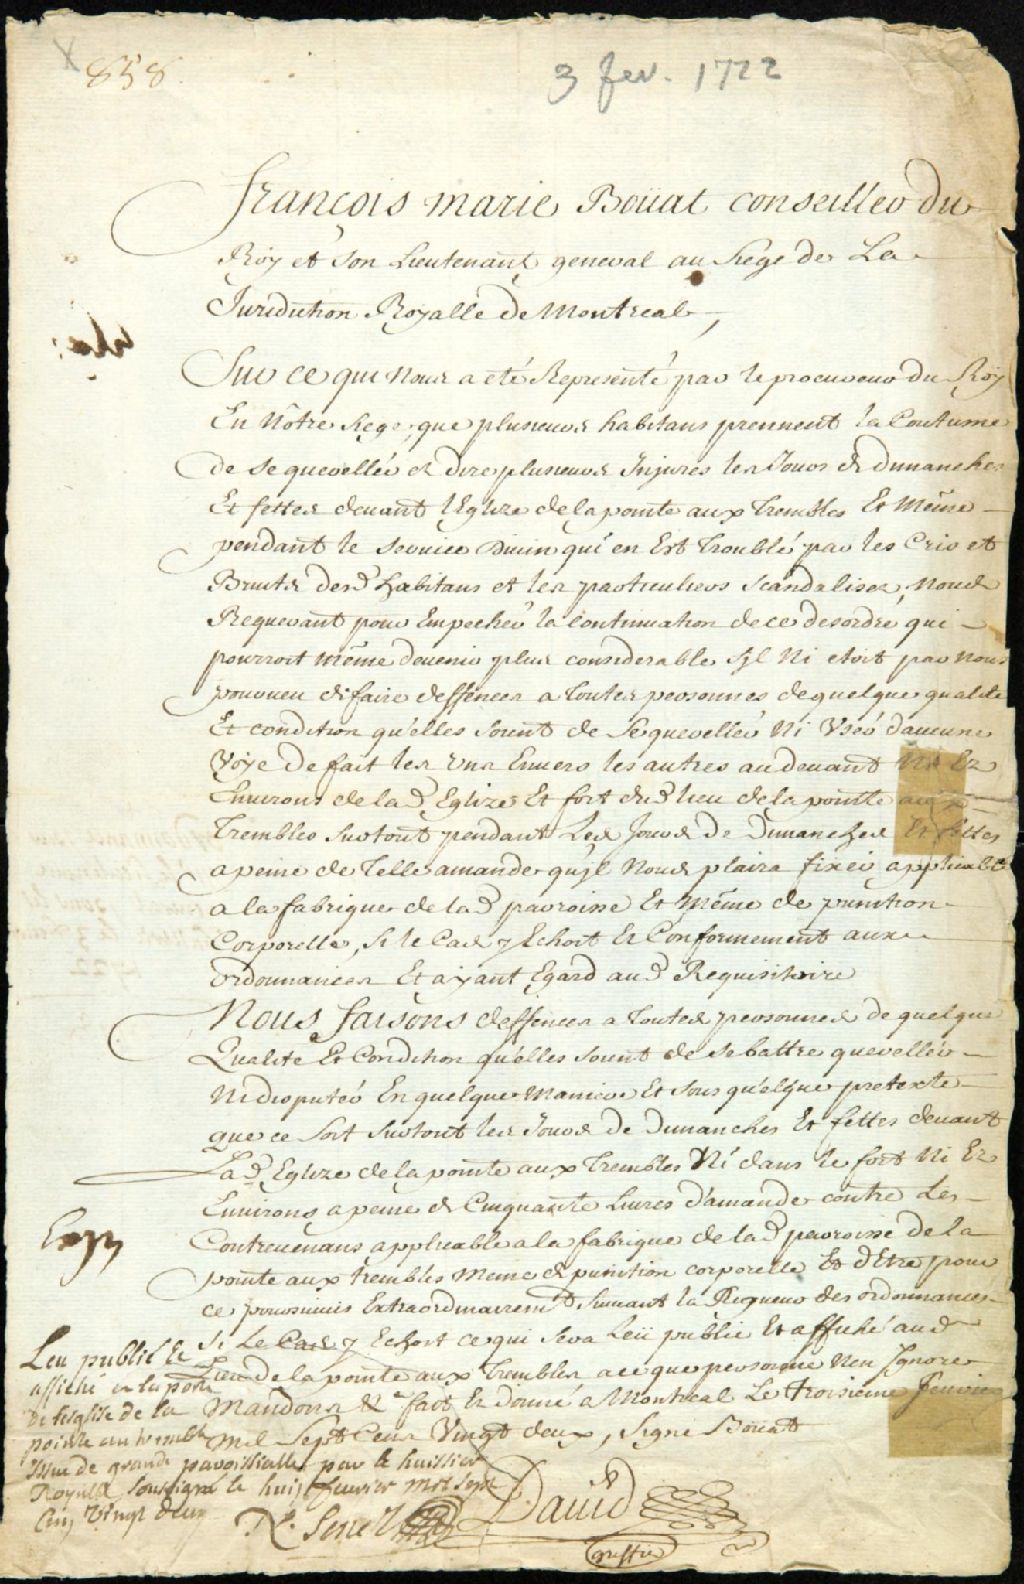 858
3 fev. 1722
françois marie Boüat conseiller du
Roy et son Lieutenant general au Siege de La
Juridiction Royalle de Montreal,
Sur ce qui Nous a été Representé par le procureur du Roy
En Nôtre siege, que plusieurs habitans prennent la Coutume
de se quereller et dire plusieurs Injures les Jours de dimanches
Et festes devant l'Eglize de la pointe aux Trembles Et Même
pendant le service Divin qui en Est Troublé par les Cris et
Bruits desd habitans et les particuliers scandalisez, Nous
Requerant pour Empecher la continuation de ce desordre qui
pourroit même devenir plus considerable s'jl Ni etoit par Nous
pourveu de faire deffences a Toutes personnes de quelque qualité
Et condition qu'elles soient de se quereller Ni User d'aucune
Voÿe de fait les uns Envers les autres au devant Ni Ez
Environs de lad Eglize Et fort dud lieu de la pointe aux
Trembles surtout pendant Les Jours de Dimanches Et festes
a peine de Telle amande qu'jl Nous plaira fixer applicable
a la fabrique de lad parroisse Et Même de punition
Corporelle, si le Cas y Echoit Et Conformement aux
ordonnances Et aÿant Egard aud Requisitoire
Nous faisons deffences a Toutes personnes de quelque
Qualité Et Condition qu'elles soient de se battre quereller
Ni disputer En quelque Maniere Et sous quelque pretexte
que ce soit surtout les Jours de Dimanches Et festes devant
Lad Eglize de la pointe aux Trembles Ni dans le fort Ni Ez
Environs a peine de Cinquante Livres d'amande contre les
Contrevenans applicable a la fabrique de lad parroisse de la
pointe aux trembles meme de punition corporelle Et d'Etre pour
ce poursuivis Extraordinairemt suivant la Rigueur des ordonnances
si Le Cas y Echoit ce qui sera Leü publié Et affiché aud
Lieu de la pointe aux Trembles a ce que personne N'en Ignore
Mandons &c fait et donné a Montreal Le troisieme fevrier
Mil Sept Cens Vingt deux, Signé Boüat
Leu publié et
affiché a la porte
de leglise de la
pointe au trembles
Issue de grande paroissialle par le huissier
Royalle soussigné le huit fevrier mil sept
Cens Vingt deux
Nt. Senet
David
greffier